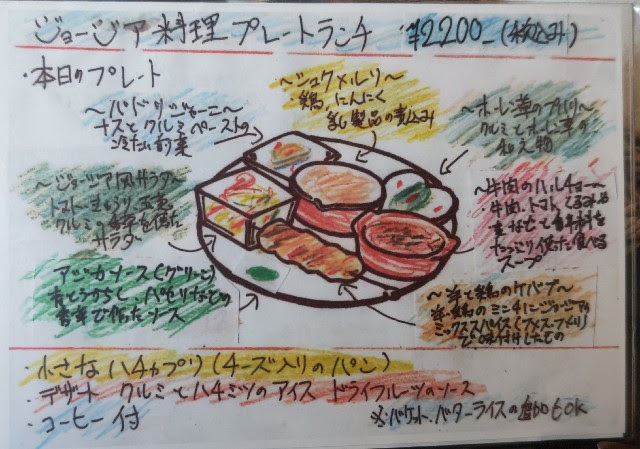 ジョージア料理プレートランチ ¥2200-(税込み)
・本日のプレート
〜バドリジャーニ〜
ナスとクルミペーストの
冷たい前菜
〜シュクメルリ〜
・鶏、にんにく
乳製品の煮込み
〜ホーレン草のプハリ〜
クルミとホーレン草の
和え物
〜ジョージア風サラダ〜
トマト、きゅうり、玉葱
クルミ、香草を使った
サラダ
〜牛肉のハルチョー〜
・牛肉、トマト、くるみ
香草
たっぷり使った食べる
スープ
アジカソース(グリーン)
青とうがらし、パセリなどの
香草で作ったソース
〜羊と鶏のケバブ〜
羊・鶏のミンチにジョージアの
ミックススパイス(フメリ・スネリ)
で味付けしたもの
・小さなハチャプリ(チーズ入りのパン)
・デザート クルミとハチミツのアイス ドライフルーツのソース
・コーヒー付
※バケット、バターライスの